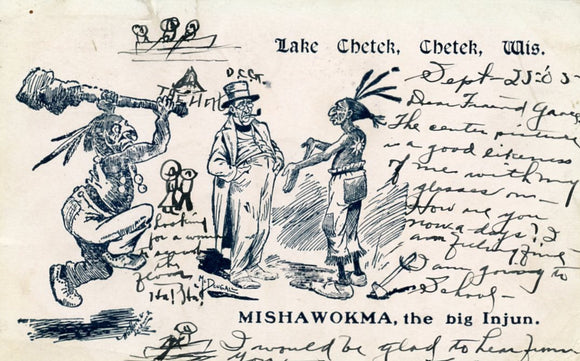 Lake Chetek, Chetek, Wis.
Sept - 25 '05 -
D.C.G.
THEHILL
Dear Friend
The center picture
is a good likeness
of me with my
glasses on -
How are you
now a days? I
am feeling fine
I am going to
School -
Looking
for a
the
Ha! Ha!
McDougall
MISHAWOKMA, the big Injun.
I would be glad to hear from
you